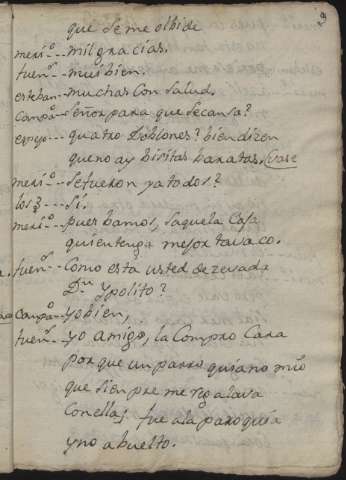 9
que se me olbide
meri.º -- mil gracias.
fuen.º -- mui bien.
esteban -- muchas con salud.
campa.º -- Señor para que se cansa?
espejo -- quatro Doblones? bien dizen
que no ay bisitas baratas. (vase
meri.º -- se fueron ya todos?
los 3 -- si.
meri.º -- pues bamos, saque la Caja
quien tenga mejor tavaco.
fuen.º -- Como esta usted de zevada
Dn Ypolito?
campa.º -- yo bien,
fuen.º -- yo amigo, la Compro Cara
por que un parro quiano mio
que sienpre me regalava
Con ella, fue a la paroquia
y no a buelto.